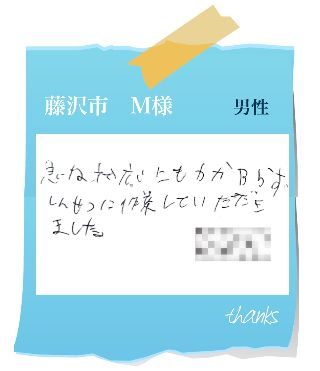 藤沢市 M様 男性
急な対応にもかかわらず、
しんせつに作業していただき
ました。
thanks